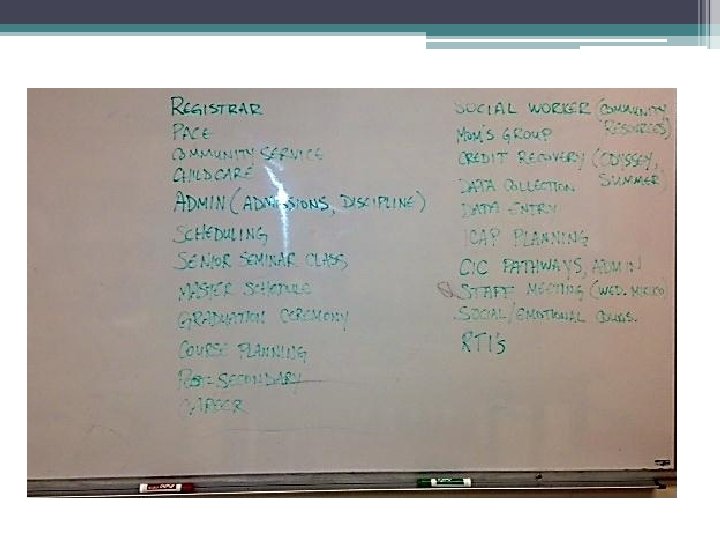 REGISTRAR
PACE
COMMUNITY SERVICE
CHILDCARE
ADMIN (ADMISSIONS, DISCIPLINE)
SCHEDULING
SENIOR SEMINAR CLASS
MASTER SCHEDULE
GRADUATION CEREMONY
COURSE PLANNING
POST-SECONDARY
CAREER
SOCIAL WORKER (COMMUNITY
RESOURCES)
MOM'S GROUP
CREDIT RECOVERY (ODYSSEY,
SUMMER)
DATA COLLECTION
DATA ENTRY
ICAP PLANNING
CIC PATHWAYS, ADMIN
STAFF MEETING (WED.
SOCIAL/EMOTIONAL
RTI's